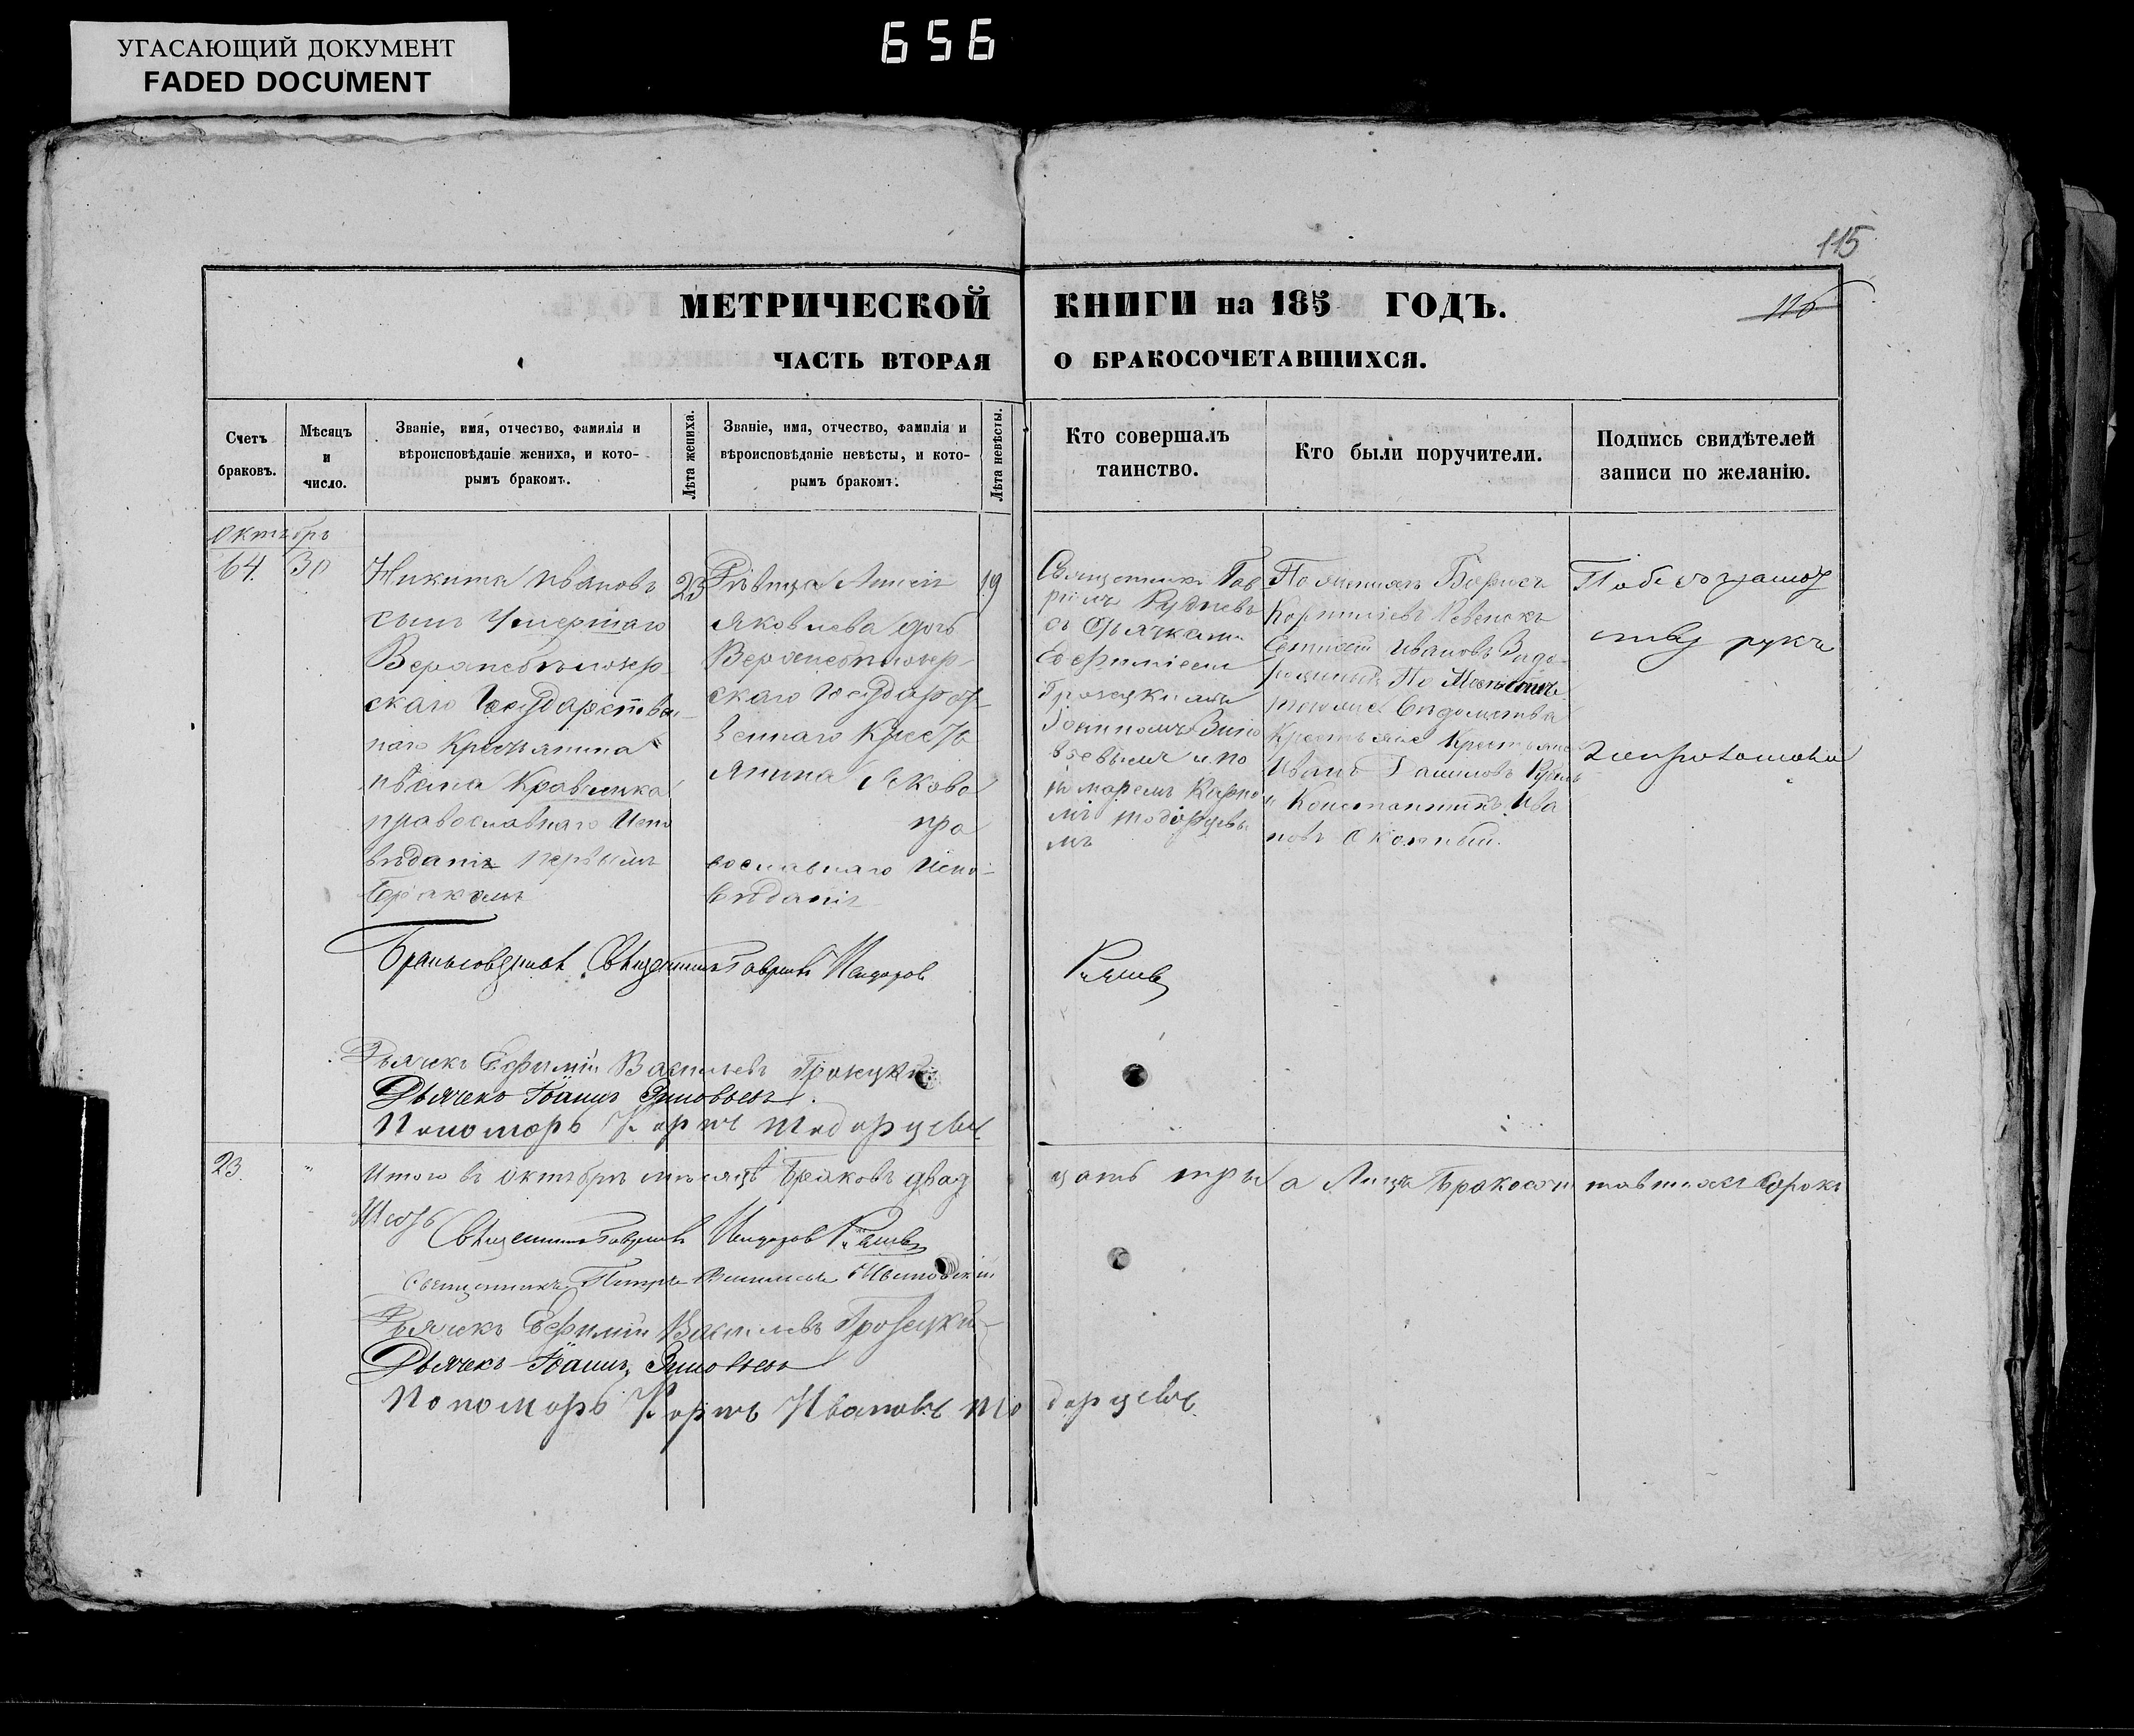 УГАСАЮЩИЙ ДОКУМЕНТ
FADED DOCUMENT
656
115
116
МЕТРИЧЕСКОЙ КНИГИ на 185 ГОДЪ.
ЧАСТЬ ВТОРАЯ О БРАКОСОЧЕТАВШИХСЯ.
Счетъ
браковъ.
Мѣсяцъ
и
число.
Званіе, имя, отчество, фамилія и
вѣроисповѣданіе жениха, и кото-
рымъ бракомъ.
Лѣта жениха.
Званіе, имя, отчество, фамилія и
вѣроисповѣданіе невѣсты, и кото-
рымъ бракомъ.
Лѣта невѣсты.
Кто совершалъ
таинство.
Кто были поручители.
Подпись свидѣтелей
записи по желанію.
Октябрь
64.
30
Никита Ивановъ
сынъ Умершаго
скаго Государствен-
наго Крестьянина
Кравченка
православнаго Испо
вѣданія первымъ
бракомъ
23
Дѣвица
Яковлева дочь
скаго Государст
веннаго Кресть
янина Якова
пра
вославнаго Испо-
вѣданія
19
Священникъ Гав
ріилъ
съ Дьячками
Ефиміемъ
Троецкимъ
Іоанномъ Зино
вьевымъ и по
номаремъ Карпо
мъ Тодорцевы
мъ
По женихѣ Борисъ
Ивановъ
По невѣстѣ
Крестьяне
Иванъ
и Константинъ Ива
новъ
рукъ
Священникъ Гавріилъ
Дьячекъ Ефимій Васильевъ Троецкій
Дьячекъ Іоаннъ Зиновьевъ.
Пономарь Карпъ Тодорцевъ
23.
Итого въ Октябрѣ мѣсяцѣ браковъ двад
цать три а Лицъ Бракосочетавшихся Сорокъ
Шесть
Священникъ Гавріилъ
Священникъ Петръ
Дьячекъ Ефимій Васильевъ Троецкій
Дьячекъ Іоаннъ Зиновьевъ
Пономарь Карпъ Ивановъ Тодорцевъ